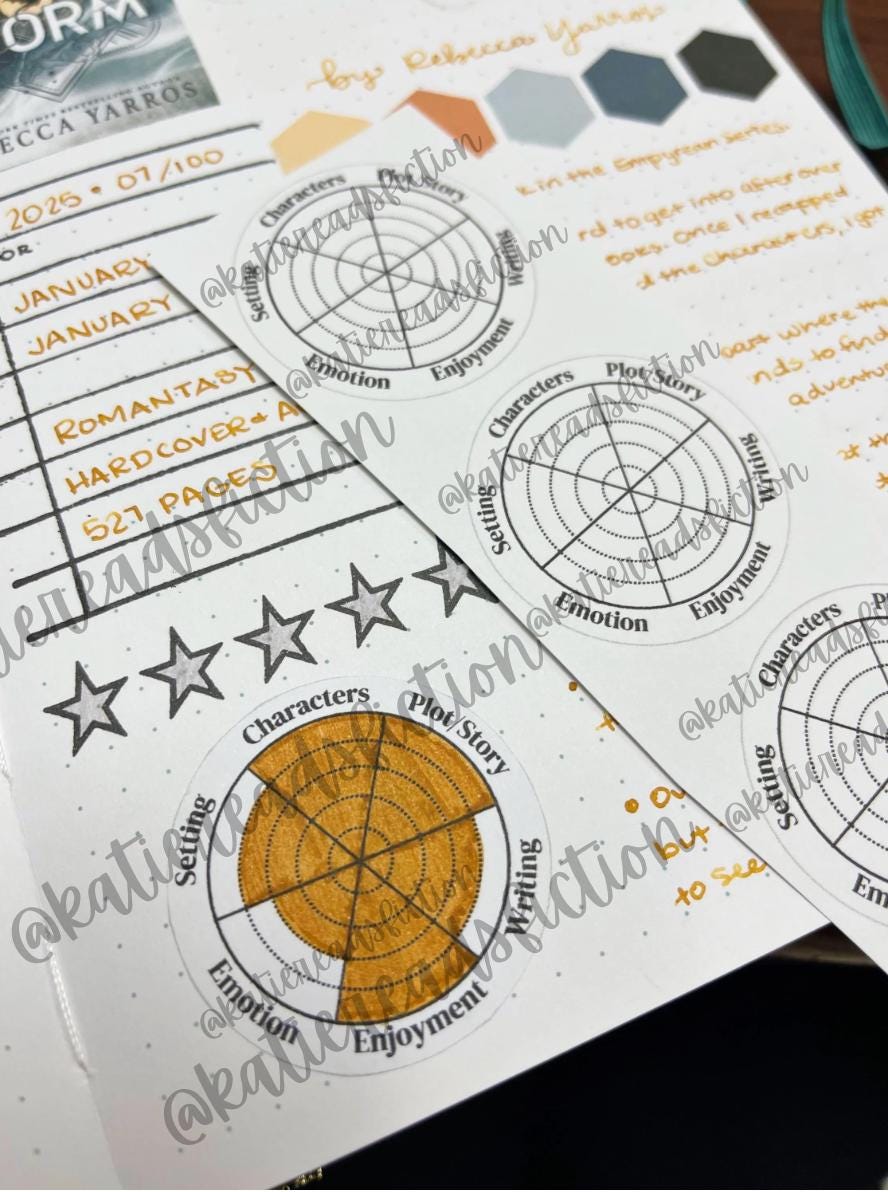 ORM
NEW YORK TIMES BESTSELLING AUTHOR
ECCA YARROS
by Rebecca Yarros
2025 • 07/100
OR
JANUARY
JANUARY
ROMANTASY
HARDCOVER + A
527 PAGES
k in the Empyrean series.
rd to get into after over
ooks. Once I recapped
d the characters, I got
part where the
nds to find
adventu
at th
Characters
Plot/Story
Writing
Enjoyment
Emotion
Setting
Characters
Plot/Story
Writing
Enjoyment
Emotion
Setting
Characters
P
Setting
Em
Characters
Plot/Story
Writing
Enjoyment
Emotion
Setting
• Ov
but
to see
@katiereadsfiction
@katiereadsfiction
@katiereadsfiction
@katiereadsfiction
@katiereadsfiction
@katiereadsfiction
@katiereadsfiction
@katiereadsfiction